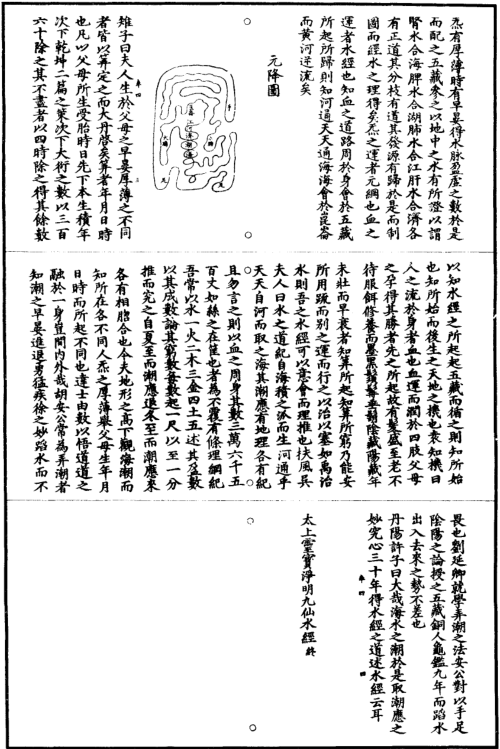 炁有厚薄時有早晏得水脉盈虛之數於是
而配之五藏參之以地中之水有所證以謂
腎水合海脾水合湖肺水合江肝水合濟各
有正道其分枝有道其發源有歸於是而制
圖而經水之理得矣炁之運者元綱也血之
運者水經也知血之道路周於身會於五藏
所起所歸則知河通天天通海海會於崑崙
而黃河逆流矣
元降圖
雉子曰夫人生於父母之早晏厚薄之不同
者皆以筭定之而大丹啓矣筭者年月日時
也凡以父母所生受胎時日先下本生積年
次下乾坤二篇之策次下大衍之數以三百
六十除之其不盡者以四時除之得其餘數
以知水經之所起起五藏而循之則知所始
也知所始而後生之天地之機也袁知機曰
人之流於身者血也血運而潤於四肢父母
之孕得其勝者先之所起故有髮盛至老不
未壯而早衰者知筭所起知筭所窮乃能安
所用䟽而別之運而行之以治以塞如禹治
水則吾之水紀可以意會而理推也扶風吳
夫人曰水之道紀自海積之派而生河通乎
天天自河而取之海其潮應有地理各有紀
且勿言之則以血之周身其數三萬六千五
百丈如絲之在筐也者為不覆有條理綱紀
吾嘗以水一火二木三金四土五述其盈數
以其成數論其窮數每數起一尺以至一分
推而究之自夏至而潮應進冬至而潮應來
各有相脗合也今夫地形之高下觀海潮而
知所在各不同人炁之厚薄與父母生年月
日時而所起不同也達士由數以悟道道之
融於一身豈間内外哉胡安公常為弄潮者
知潮之早晏進退勇猛疾徐之妙蹈水而不
畏也劉延卿就學弄潮之法安公對以手足
陰陽之論授之五藏銅人龜鑑九年而蹈水
出入去來之勢不差也
丹陽許子曰大哉海水之潮於是取潮應之
妙究心三十年得水經之道述水經云耳
太上靈寶淨明九仙水經 終